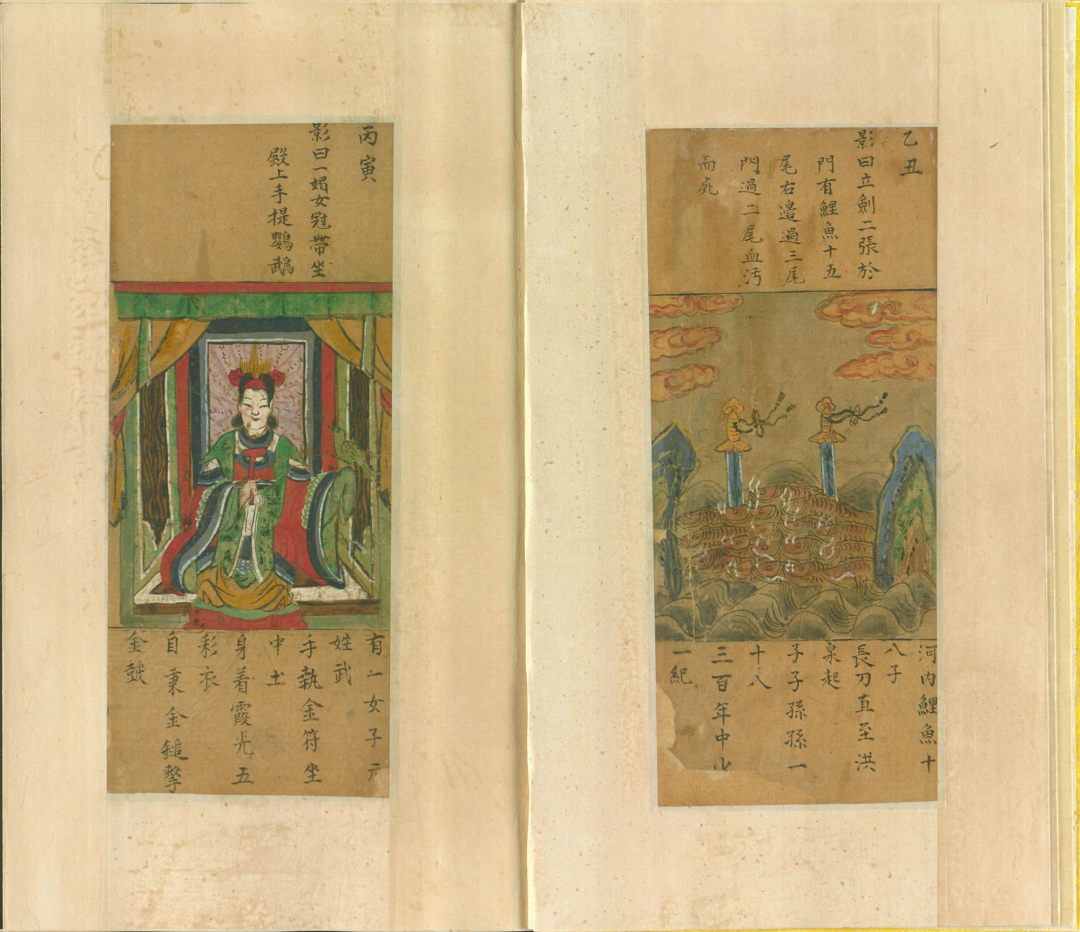 乙丑
影曰立劍二張於
門有鯉魚十五
尾右邊過三尾
門過二尾血污
而死
河內鯉魚十
八子
長刀直至洪
泉起
子子孫孫一
十八
三百年中少
一紀
丙寅
影曰一媚女冠帶坐
殿上手提鸚鵡
有一女子元
姓武
手執金符坐
中土
身着霞光五
彩衣
自秉金鎚擊
金鼓